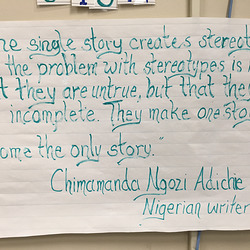 single story creates stereot
the problem with stereotypes is
they are untrue, but that they
incomplete. They make one sto
ome the only story."
Chimamanda Ngozi Adichie
Nigerian writer